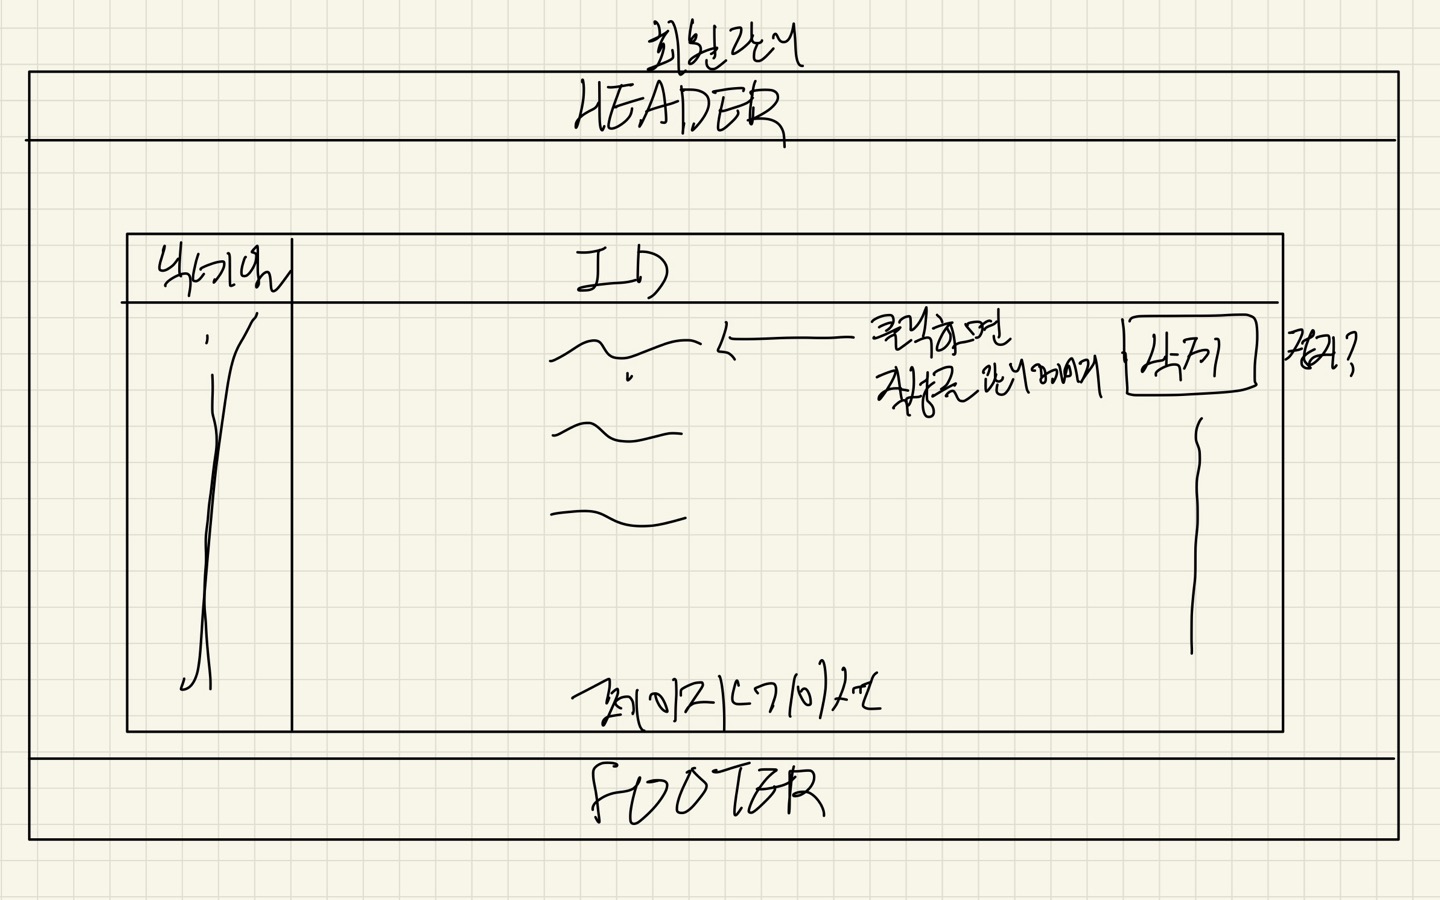 회원관리
HEADER
닉네임
ID
클릭하면
관리
삭제
페이지네이션
FOOTER